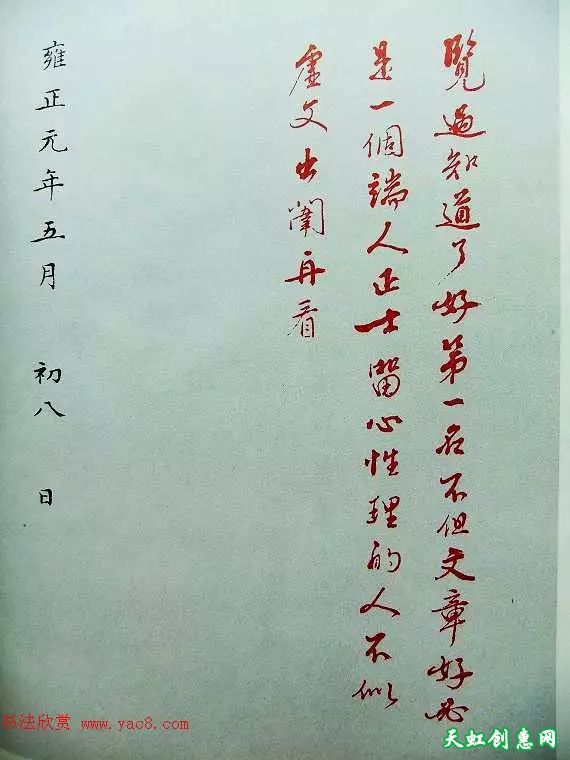 覽過知道了好第一名不但文章好必
是一個端人正士留心性理的人不似
虛文出闈再看
雍正元年五月 初八 日
书法欣赏 www.yac8.com
天虹创惠网